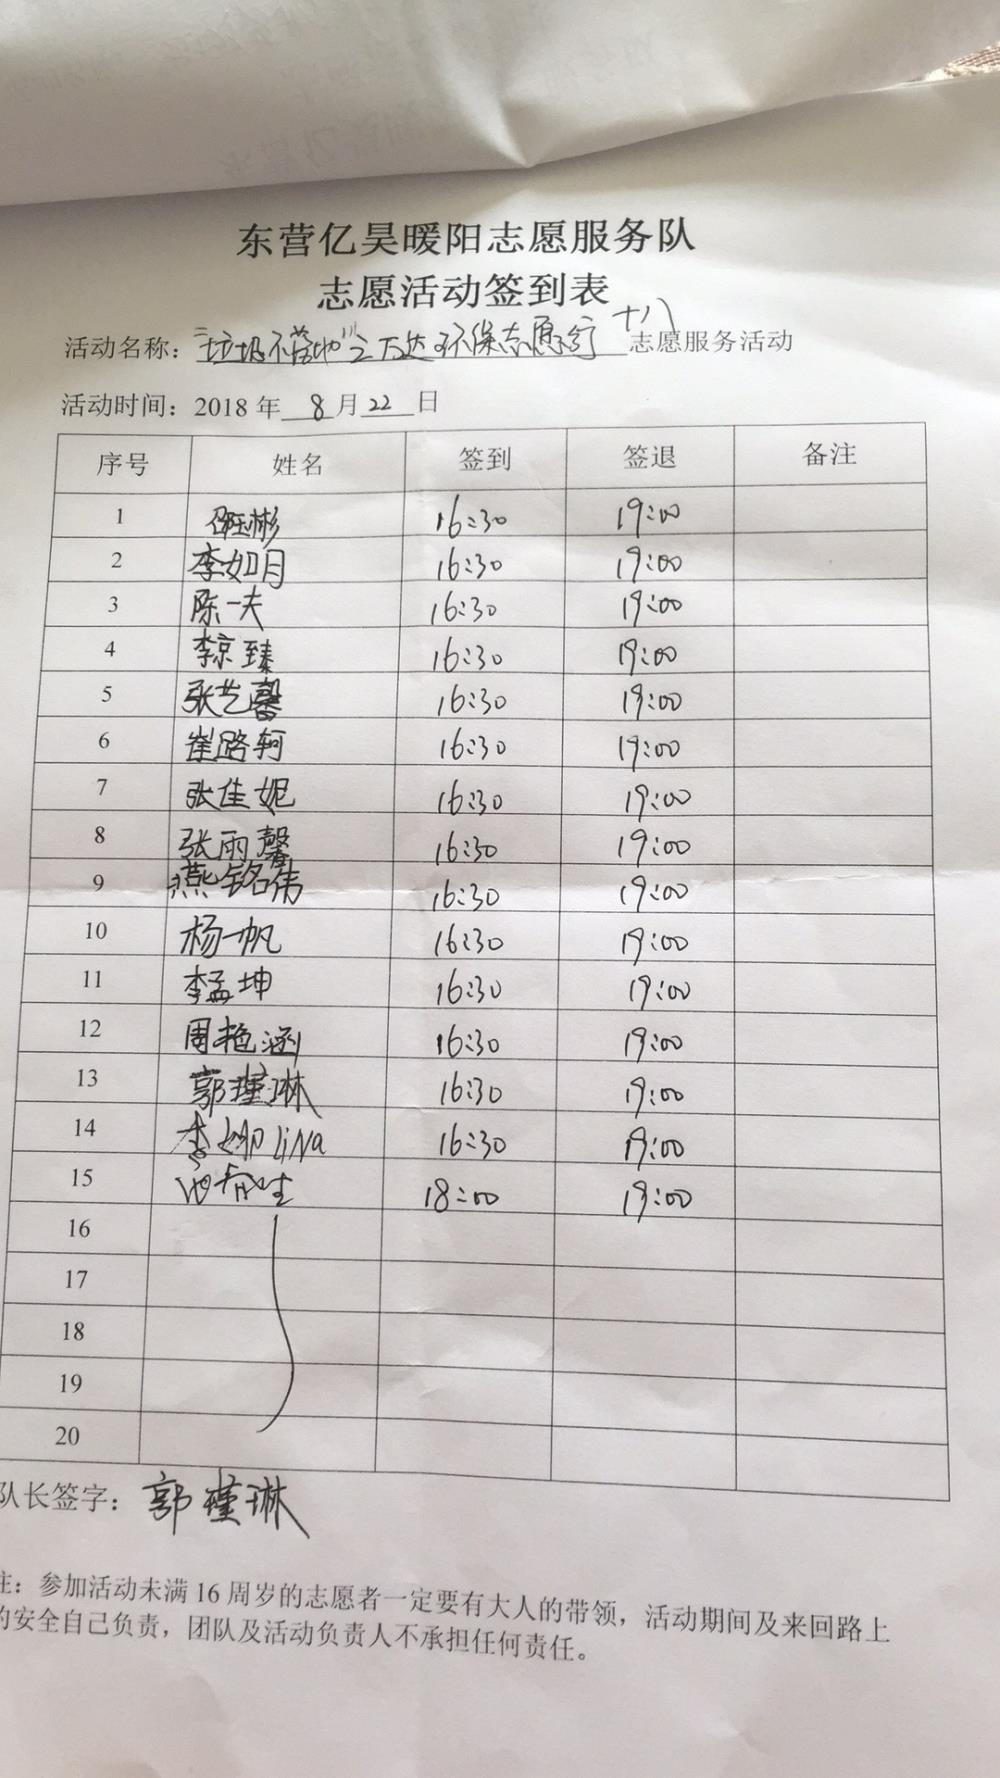 东营亿昊暖阳志愿服务队
志愿活动签到表
活动名称：“垃圾不落地”之万达环保志愿行十八志愿服务活动
活动时间：2018年8月22日
序号 姓名 签到 签退 备注
1 彬 16:30 19:00
2 李如月 16:30 19:00
3 陈一夫 16:30 19:00
4 李京臻 16:30 19:00
5 张艺馨 16:30 19:00
6 崔路轲 16:30 19:00
7 张佳妮 16:30 19:00
8 张雨馨 16:30 19:00
9 燕铭伟 16:30 19:00
10 杨一帆 16:30 19:00
11 李孟坤 16:30 19:00
12 周艳涵 16:30 19:00
13 郭瑾琳 16:30 19:00
14 李娜 liNa 16:30 19:00
15 18:00 19:00
16
17
18
19
20
队长签字：郭瑾琳
注：参加活动未满16周岁的志愿者一定要有大人的带领，活动期间及来回路上
的安全自己负责，团队及活动负责人不承担任何责任。